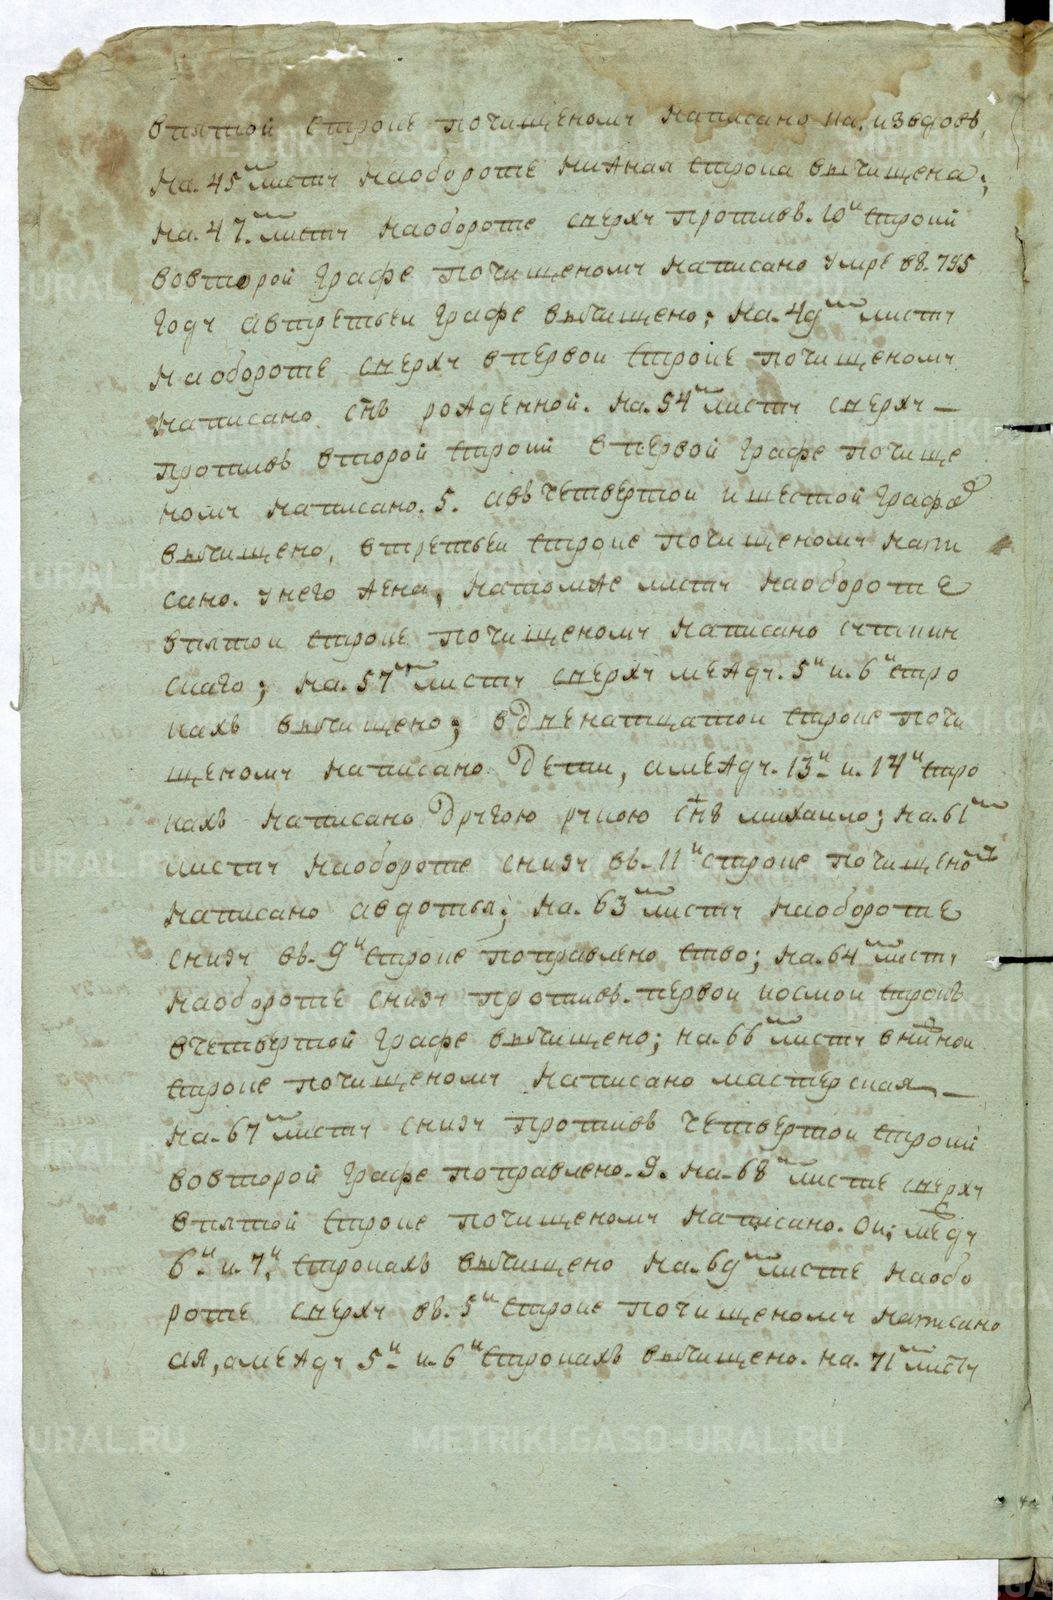 в пятой строке почищеному написано на. извдовъ,
на. 45м листу наобороте нижная строка вычищена;
на. 47.м листу наобороте сверху противъ. 10й строки
вовторой графе почищеному написано умре въ. 795
году автретьеи графе вычищено; на. 49м листу
наобороте сверху впервои строке почищеному
написано снъ рожденной. на. 54м листу сверху
противъ второй строки впервой графе почище
ному написано. 5. авъ четвертои ишестой графъ
вычищено, втретьеи строке почищеному напи
сано. унего жена, натомже листу наобороте
впятои строке почищеному написано
скаго; на. 57м листу сверху между. 5й и. 6й стро
кахъ вычищено; вдвенатцатои строке почи
щеному написано дети, амежду. 13й и. 14й стро
кахъ написано другою рукою снъ михаило; на. 61м
листу наобороте снизу въ. 11й строке почищеному
написано авдотья; на. 63м листу наобороте
снизу въ. 9й строке поправлено ство; на. 64м листу
наобороте снизу противъ. первои иосмои строкъ
вчетвертой графе вычищено; на. 66м листу внижнои
строке почищеному написано мастерская
на. 67м листу снизу противъ четвертои строки
вовторой графе поправлено. 9. на. 68м листе сверху
впятой строке почищеному написано. ок; между
6й и. 7й. строкахъ вычищено на. 69м листе наобо
роте сверху въ. 5й строке почищеному написано
ая, амежду 5й и. 6й строкахъ вычищено. на. 71м листу
METRIKI.GASO-URAL.RU